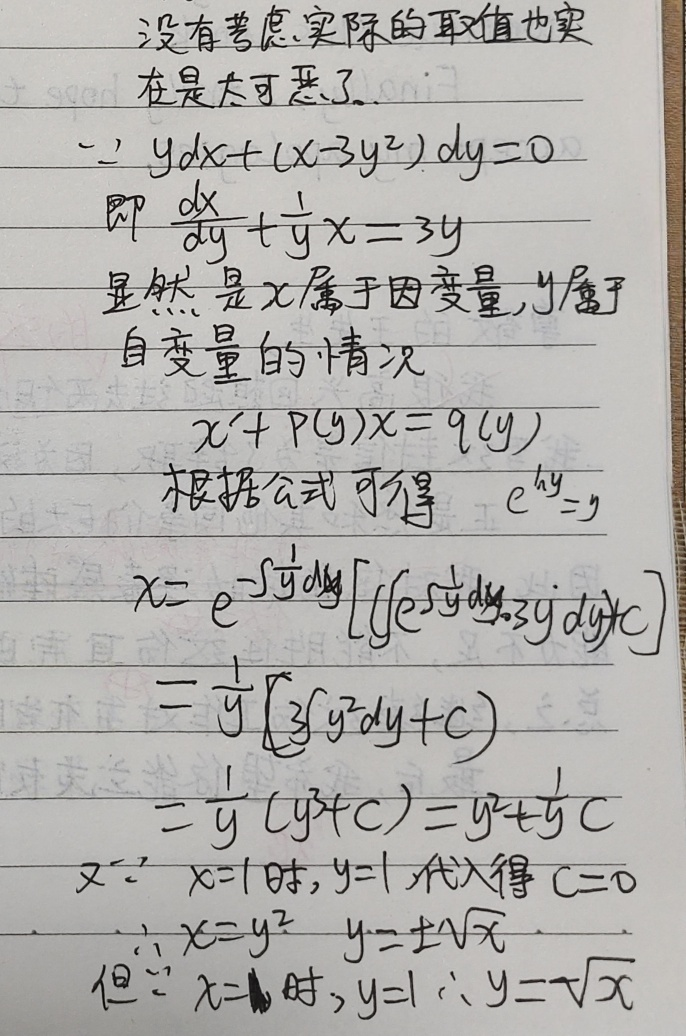 没有考虑实际的取值也实
在是太可恶了..
∵ ydx+(x-3y²)dy=0
即 dx/dy + 1/y x = 3y
显然是x属于因变量,y属于
自变量的情况
x′+P(y)x=q(y)
根据公式可得 e^{lny}=y
x= e^{-∫1/y dy}[(∫e^{∫1/y dy}·3y dy)+C]
= 1/y [3∫y²dy+C)
= 1/y (y³+C)=y²+1/y C
又∵ x=1时,y=1,代入得 C=0
∴ x=y² y=±√x
但∵ x=1时,y=1∴y=√x